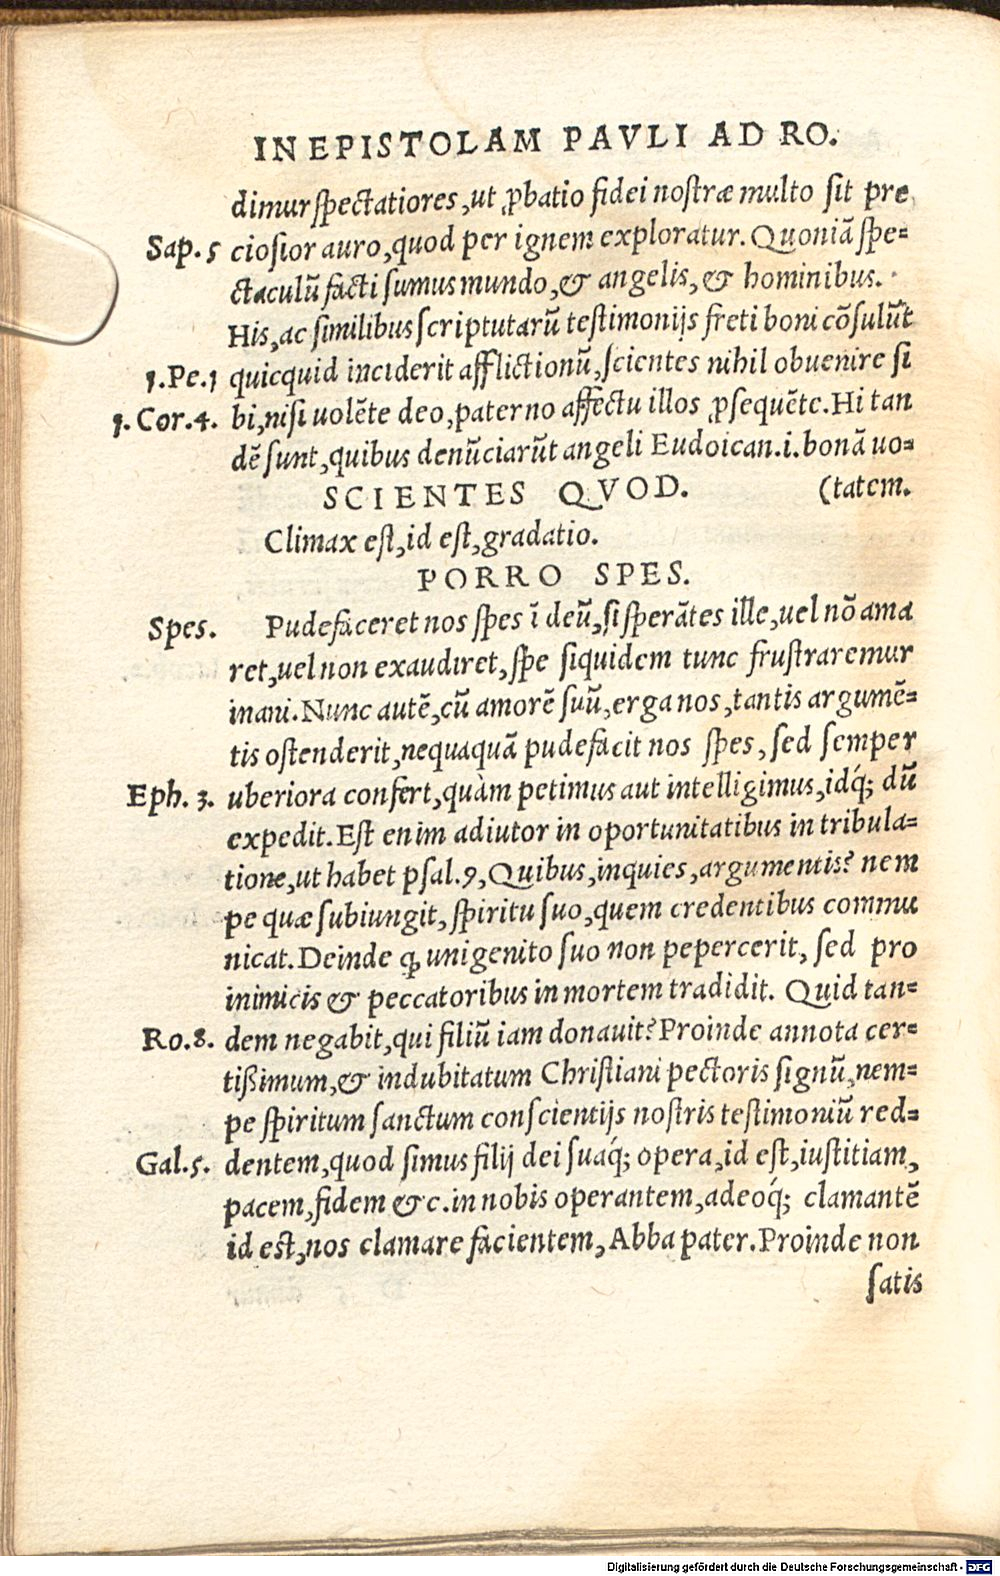 IN EPISTOLAM PAVLI AD RO.
dimur spectatiores, ut ꝓbatio fidei nostræ multo sit pre
Sap. 5 ciosior auro, quod per ignem exploratur. Quoniā spe=
ctaculū facti sumus mundo, & angelis, & hominibus.
His, ac similibus scriptutarū testimonijs freti boni cōsulūt
1.Pe.1 quicquid inciderit afflictionū, scientes nihil obuenire si
1. Cor.4. bi, nisi uolēte deo, paterno affectu illos ꝓsequēte. Hi tan
dē sunt, quibus denūciarūt angeli Eudoican.i. bonā uo=
SCIENTES QVOD. (tatem.
Climax est, id est, gradatio.
PORRO SPES.
Spes. Pudefaceret nos spes ī deū, si sperātes ille, uel nō ama
ret, uel non exaudiret, spe siquidem tunc frustraremur
inani. Nunc autē, cū amorē suū, erga nos, tantis argumē=
tis ostenderit, nequaquā pudefacit nos spes, sed semper
Eph. 3. uberiora confert, quàm petimus aut intelligimus, idq́; dū
expedit. Est enim adiutor in oportunitatibus in tribula=
tione, ut habet psal.9, Quibus, inquies, argumentis? nem
pe quæ subiungit, spiritu suo, quem credentibus commu
nicat. Deinde ꝙ unigenito suo non pepercerit, sed pro
inimicis & peccatoribus in mortem tradidit. Quid tan=
Ro.8. dem negabit, qui filiū iam donauit? Proinde annota cer=
tißimum, & indubitatum Christiani pectoris signū, nem=
pe spiritum sanctum conscientijs nostris testimoniū red=
Gal.5. dentem, quod simus filij dei suaq́; opera, id est, iustitiam,
pacem, fidem &c. in nobis operantem, adeoq́; clamantē
id est, nos clamare facientem, Abba pater. Proinde non
satis
Digitalisierung gefördert durch die Deutsche Forschungsgemeinschaft - DFG